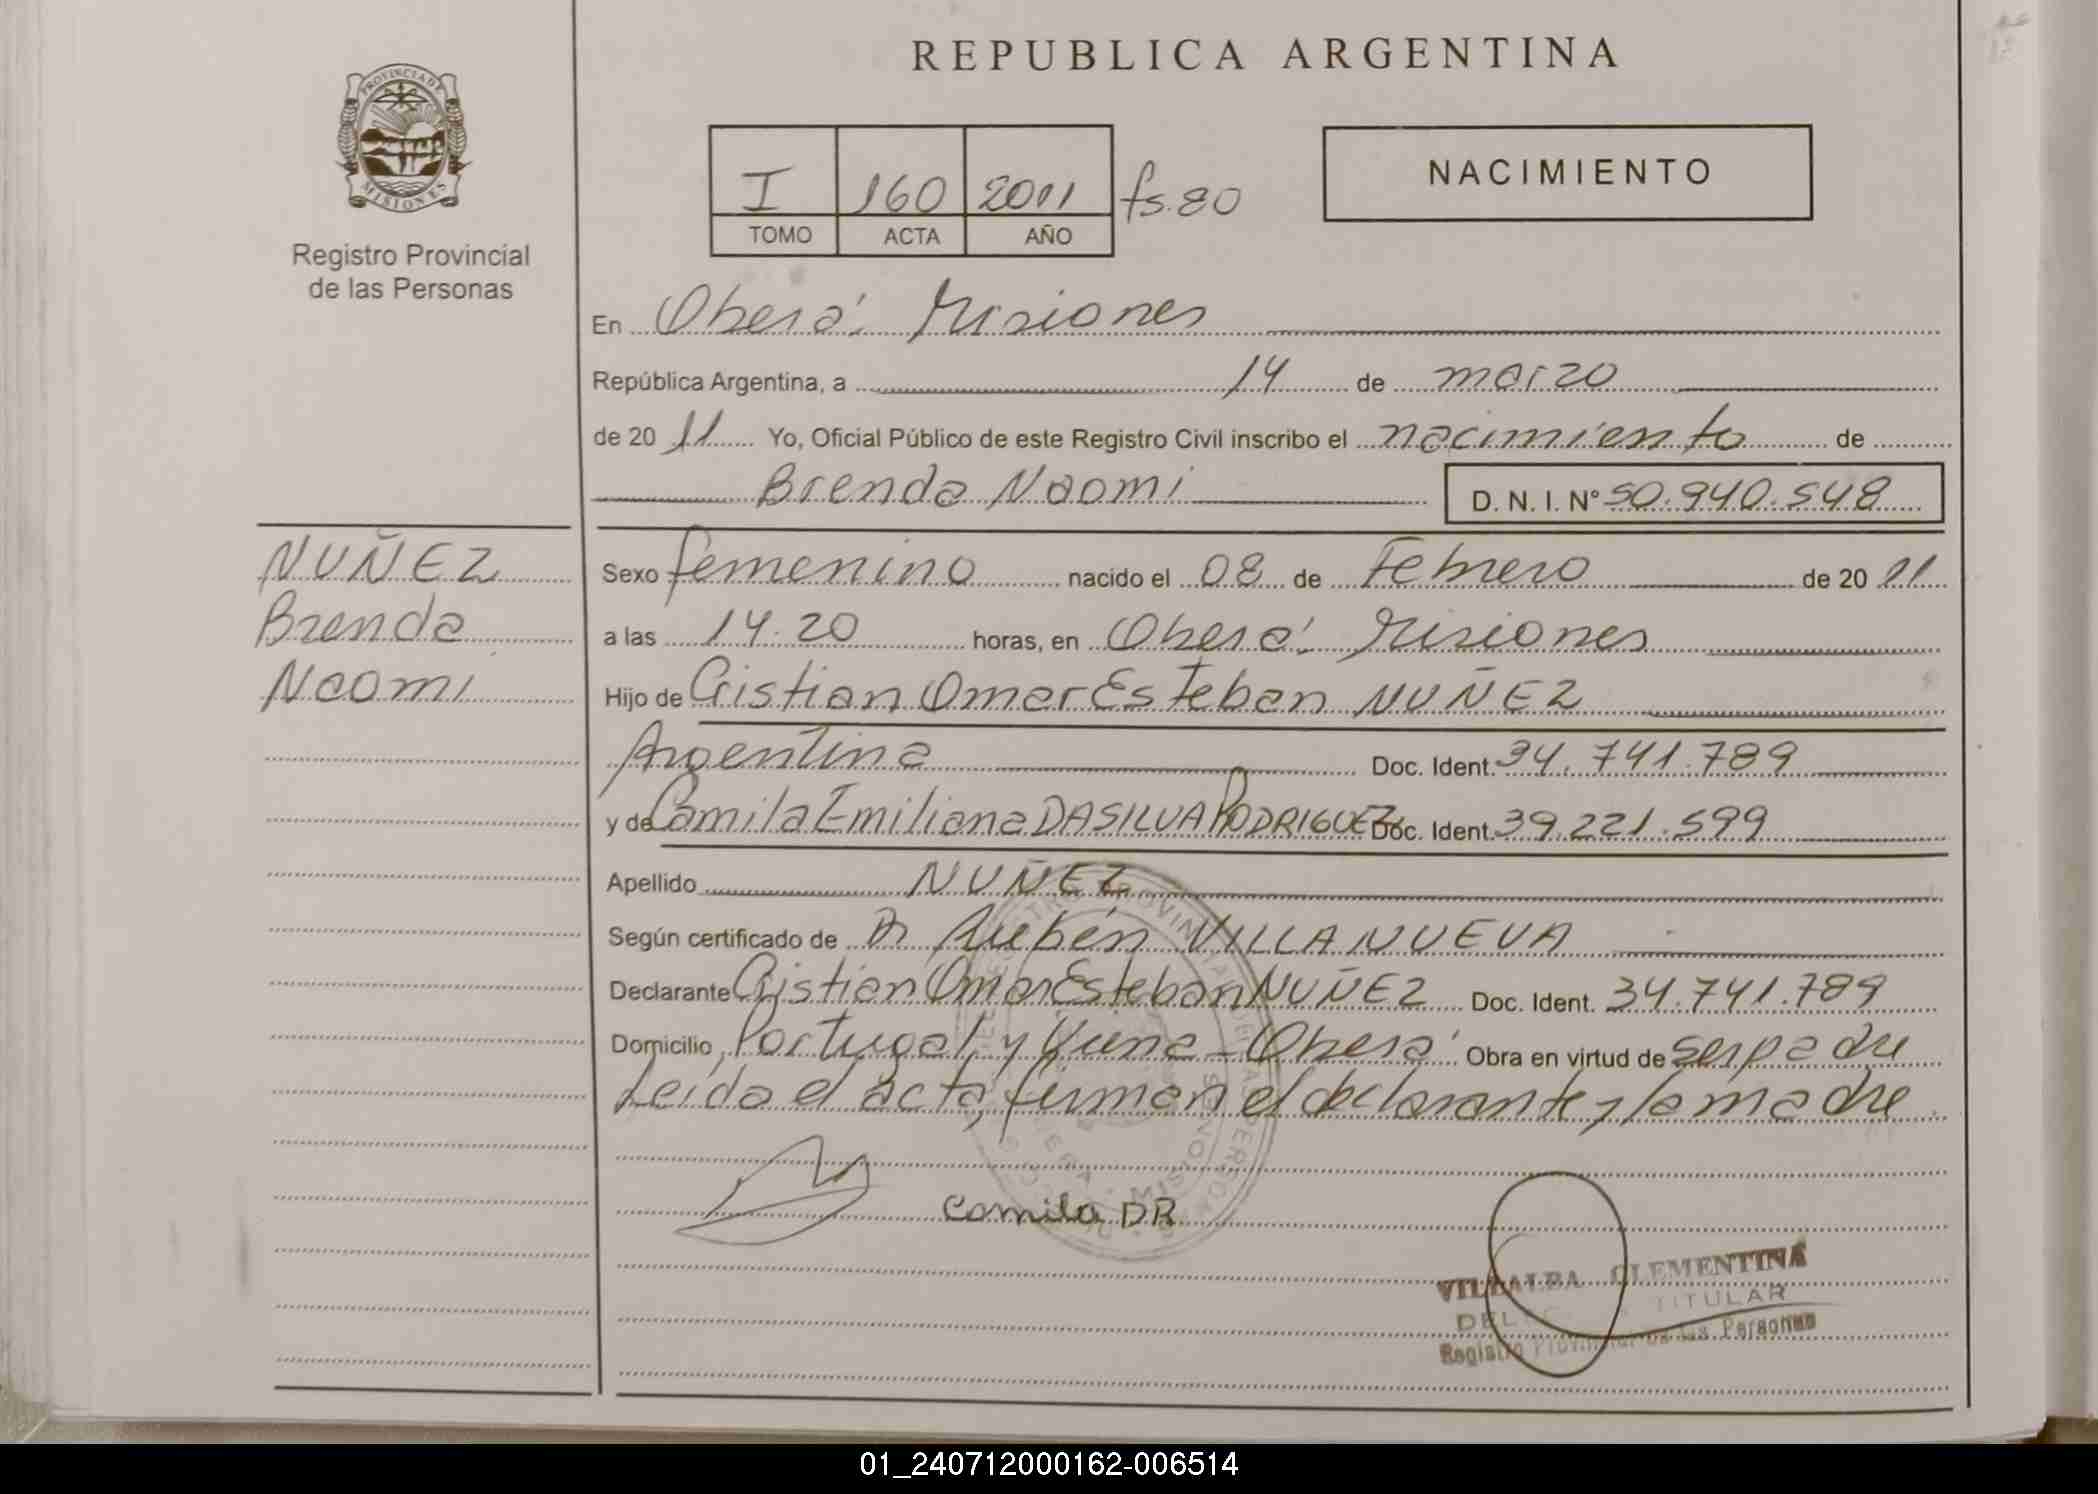 REPUBLICA ARGENTINA
PROVINCIA DE
MISIONES
Registro Provincial
de las Personas
I 160 2011 fs. 80
TOMO ACTA AÑO
NACIMIENTO
En Oberá. Misiones
República Argentina, a 14 de marzo
de 20 11 Yo, Oficial Público de este Registro Civil inscribo el nacimiento de
Brenda Naomi D. N. I. Nº 50.940.548
NUÑEZ
Brenda
Naomi
Sexo femenino nacido el 08 de Febrero de 20 11
a las 14.20 horas, en Oberá. Misiones
Hijo de Cristian Omar Esteban NUÑEZ
Argentina Doc. Ident. 34.741.789
y de Camila Emiliana DA SILVA RODRIGUEZ Doc. Ident. 39.221.599
Apellido NUÑEZ
Según certificado de Dr Rubén VILLANUEVA
Declarante Cristian Omar Esteban NUÑEZ Doc. Ident. 34.741.789
Domicilio Portugal y Viena - Oberá Obra en virtud de ser padre
Leída el acta, firman el declarante y la madre.
Camila DR
VILLALBA CLEMENTINA
TITULAR
Registro Provincial de las Personas
01_240712000162-006514